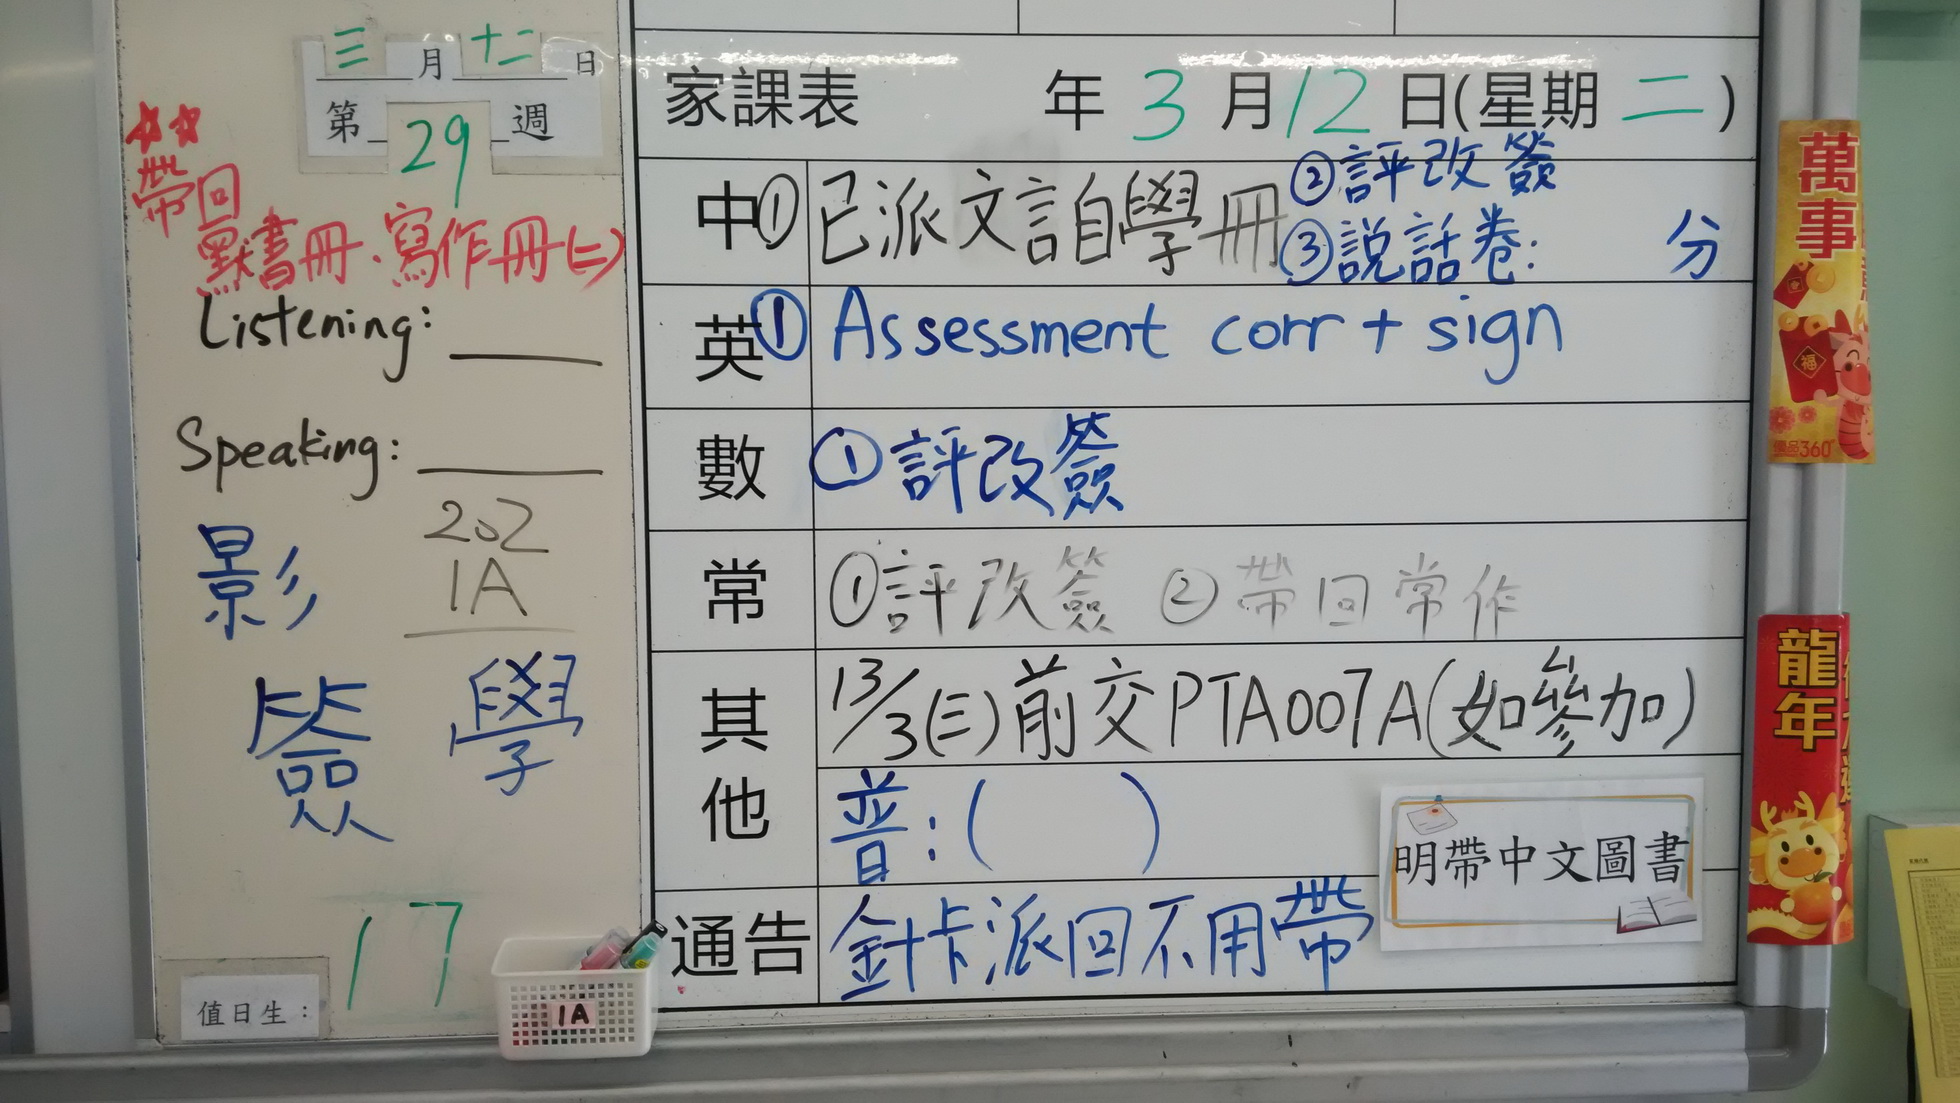 三月十二日
第29週
帶回
默書冊.寫作冊(二)
Listening:
Speaking:
202
1A
影
簽 學
17
值日生:
1A
家課表 年3月12日(星期二)
中 ①已派文言自學冊 ②評改簽
③說話卷: 分
英 ① Assessment corr + sign
數 ①評改簽
常 ①評改簽 ②帶回常作
其他 13/3(三)前交PTA007A(如參加)
普:( )
明帶中文圖書
通告 針卡派回不用帶
萬事
福
360°
龍年